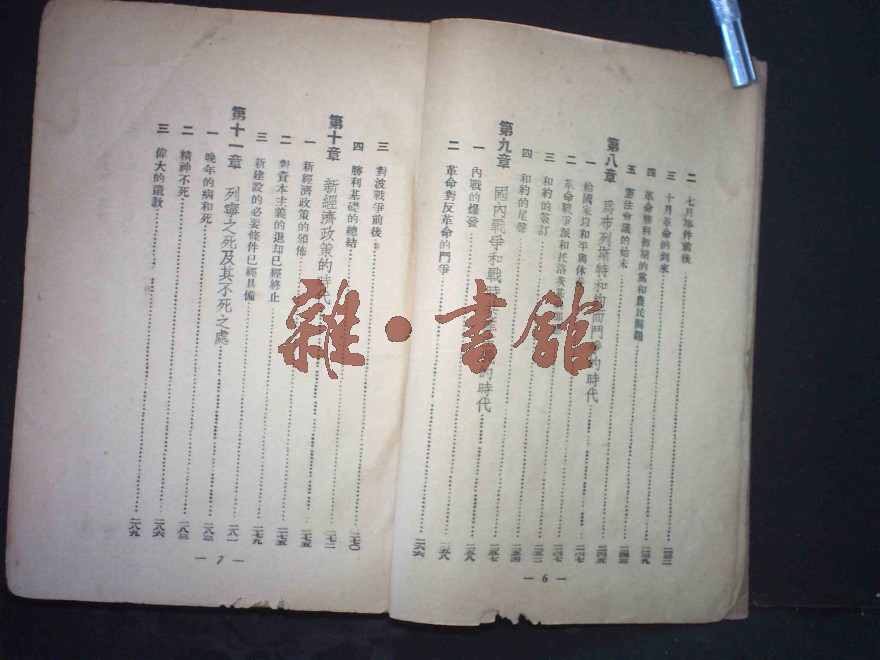 二 七月事件前後 二三二
三 十月革命的到來 二三九
四 革命勝利初期的黨和農民問題 二四三
五 憲法會議的始末 二四五
第八章 爲布列斯特和約而鬥爭的時代 二四七
一 給國家以和平與休息 二四七
二 革命戰爭派和托洛茨基 二五二
三 和約的簽訂 二五四
四 和約的尾聲 二五七
第九章 國內戰爭和戰時 的時代 二五八
一 內戰的爆發 二五八
二 革命對反革命的鬥爭 二六六
— 6 —
三 對波戰爭前後 二七〇
四 勝利基礎的總結 二七二
第十章 新經濟政策的時代 二七五
一 新經濟政策的頒佈 二七五
二 對資本主義的退却已經終止 二七九
三 新建設的必要條件已經具備 二八一
第十一章 列寧之死及其不死之處 二八三
一 晚年的病和死 二八三
二 精神不死 二八六
三 偉大的遺教 二八九
— 7 —
雜·書舘